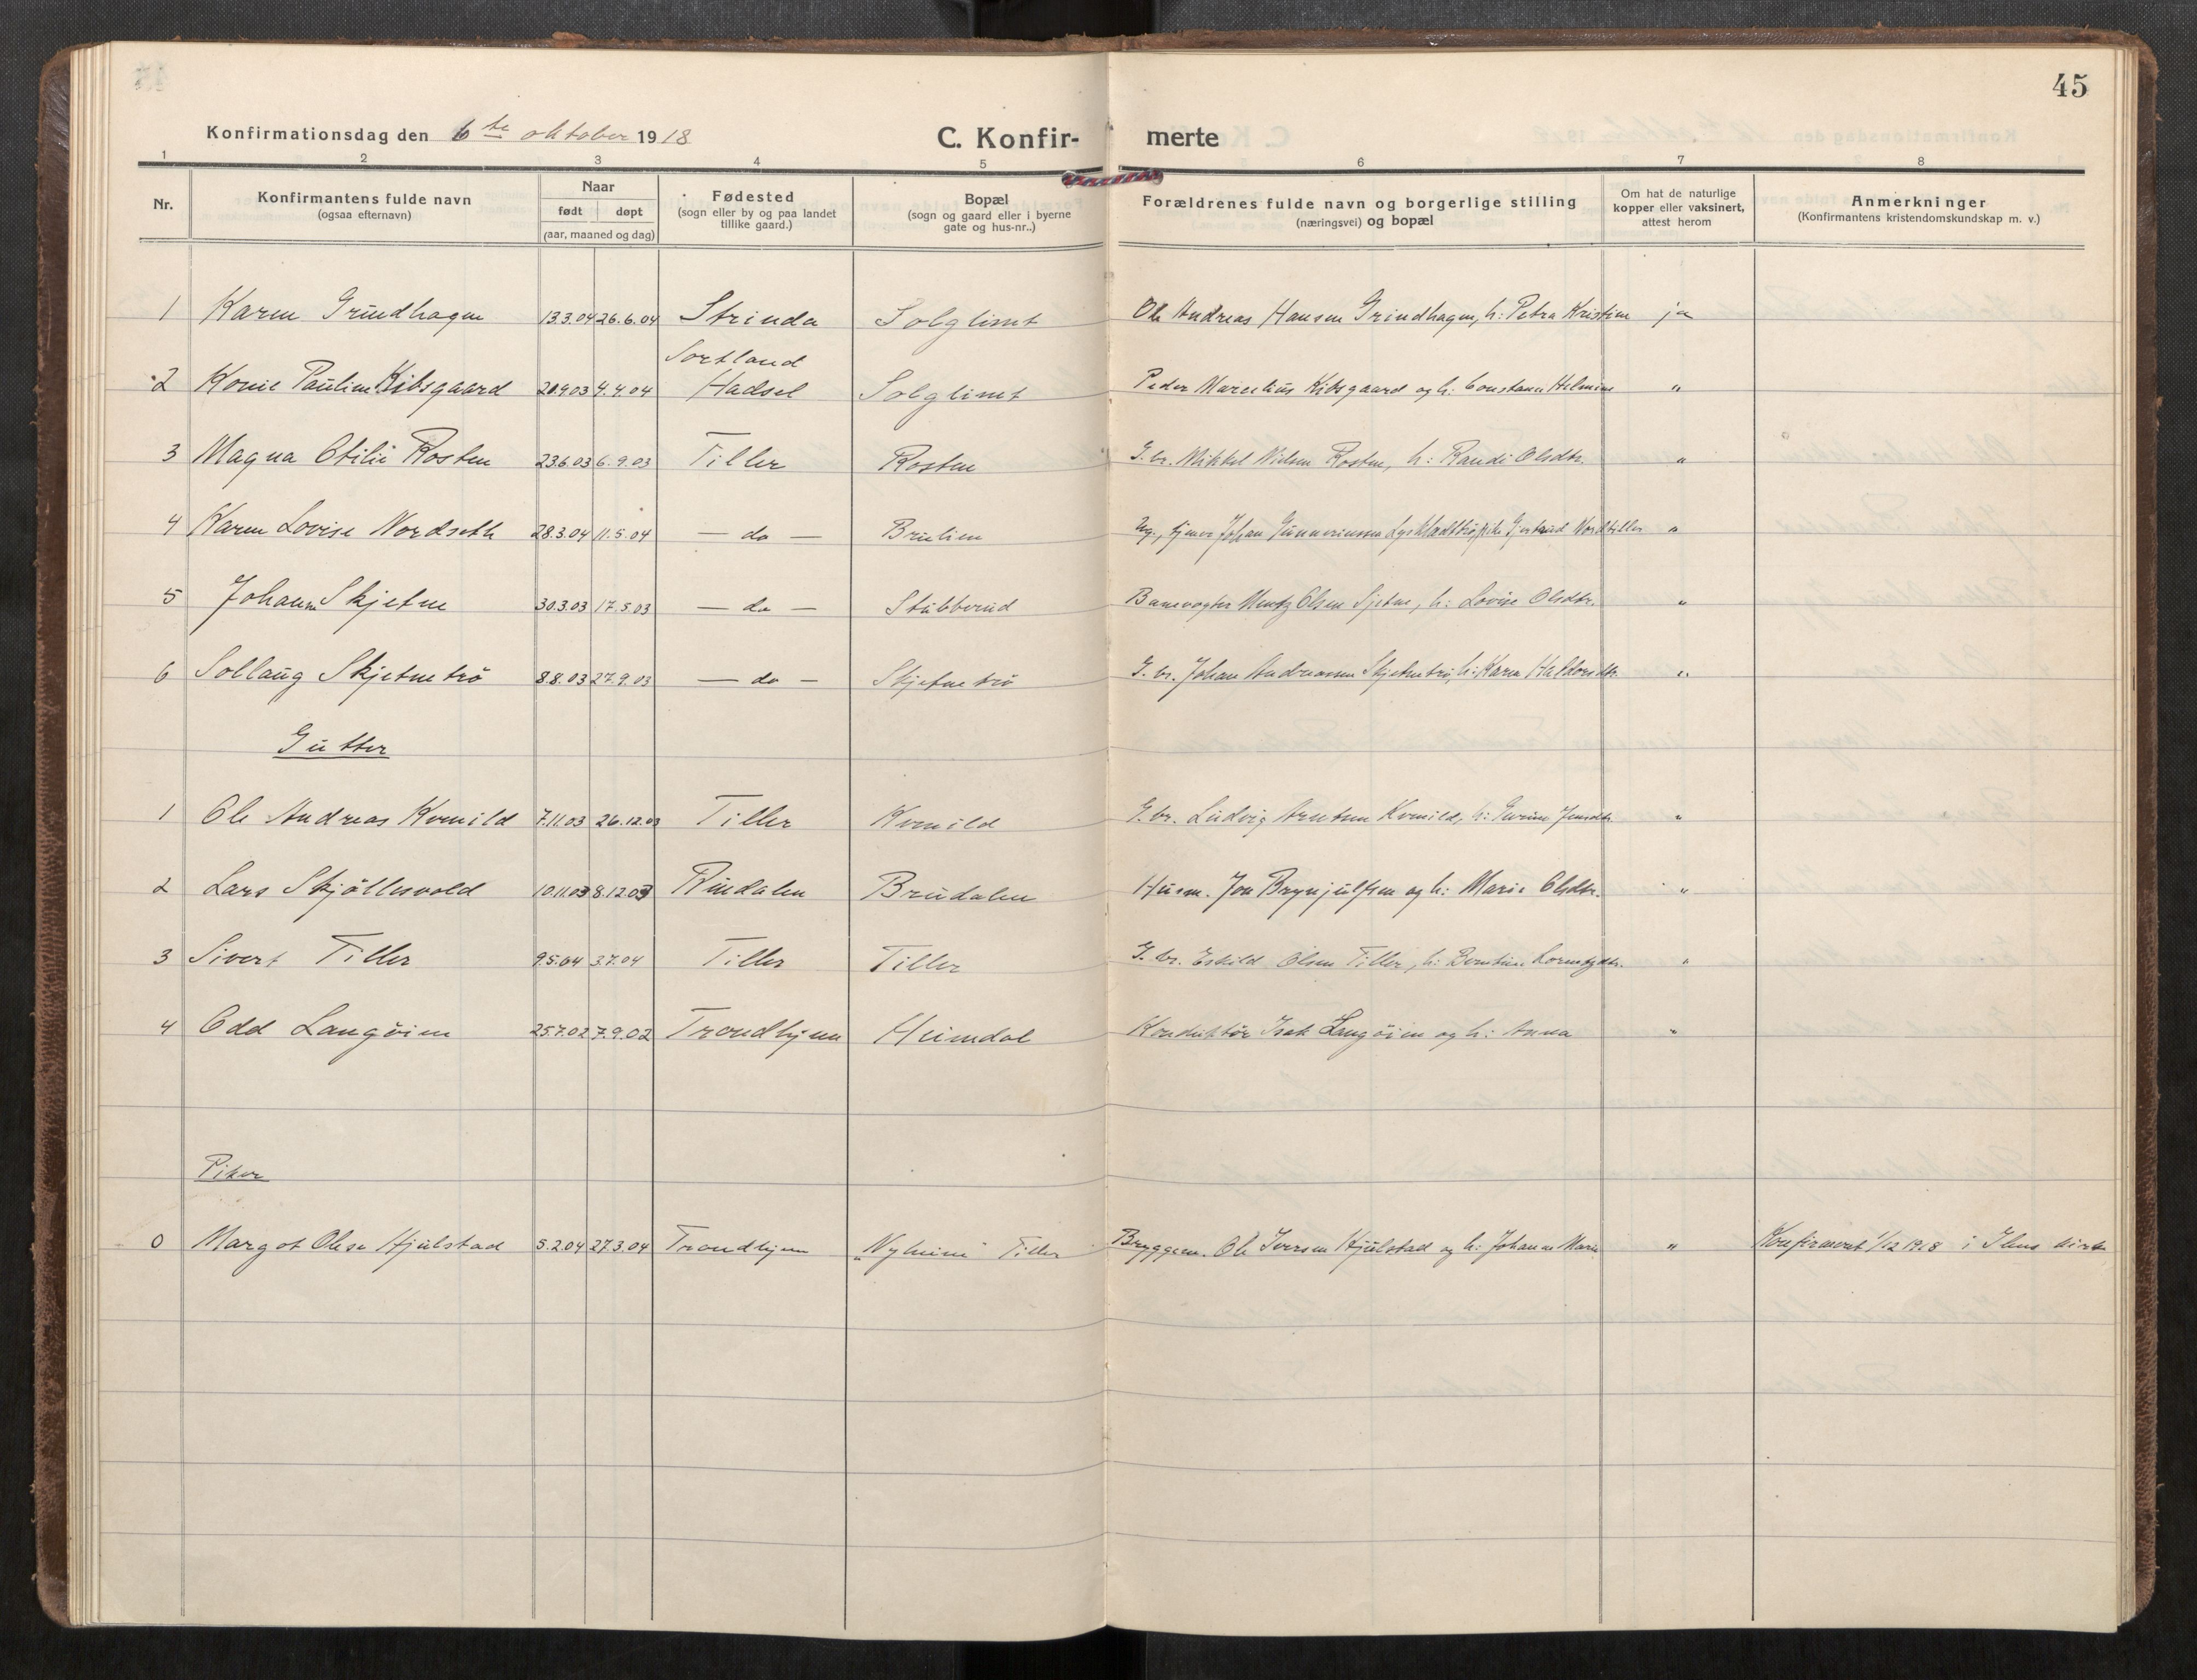 45
Konfirmationsdag den 6te oktober 1918
C. Konfir- merte
1 2 3 4 5 6 7 8
Nr.
Konfirmantens fulde navn
(ogsaa efternavn)
Naar
født døpt
(aar, maaned og dag)
Fødested
(sogn eller by og paa landet
tillike gaard.)
Bopæl
(sogn og gaard eller i byerne
gate og hus-nr..)
Forældrenes fulde navn og borgerlige stilling
(næringsvei) og bopæl
Om hat de naturlige
kopper eller vaksinert,
attest herom
Anmerkninger
(Konfirmantens kristendomskundskap m. v.)
1 Karen Grindhagen 13.3.04 26.6.04 Strinda Solglimt Ole Andreas Hansen Grindhagen, h: Petra Kristine ja
Sortland
2 Pauline Kibsgaard 20.9.03 4.4.04 Hadsel Solglimt Peder Marcelius Kibsgaard og h: Constance Helmine "
3 Magna Otilie Rosten 23.6.03 6.9.03 Tiller Rosten G.br. Mikkel Nielsen Rosten, h: Randi Olsdtr. "
4 Karen Lovise Nordseth 28.3.04 11.5.04 — do — Brulien Johan Gunneriussen Gjertrud Nordtiller "
5 Johanne Skjetne 30.3.03 17.5.03 — do — Stubberud Banevogter Mentz Olsen Sjetne, h: Lovise Olsdtr. "
6 Sollaug Skjetnetrø 8.8.03 27.9.03 — do — Skjetnetrø G.br. Johan Andreassen Skjetnetrø, h: Karen Haldorsdtr. "
Gutter
1 Ole Andreas Kvenild 7.11.03 26.12.03 Tiller Kvenild G.br. Ludvig Arntsen Kvenild, h: Gurine Jensdtr. "
2 Lars Skjøllesvold 10.11.03 8.12.03 Rindalen Brudalen Husm. Jon Brynjulfsen og h: Marie Olsdtr. "
3 Sivert Tiller 9.5.04 3.7.04 Tiller Tiller G.br. Eskild Olsen Tiller, h: Berntine Lorentzdtr. "
4 Odd Langøien 25.7.02 7.9.02 Trondhjem Heimdal Konduktør Isak Langøien og h: Anna "
Piker
0 Margot Olese Hjulstad 5.2.04 27.3.04 Trondhjem "Nyheim" Tiller Bryggem. Ole Iversen Hjulstad og h: Johanne Marie " Konfirmert 1/12 1918 i Ilens kirke